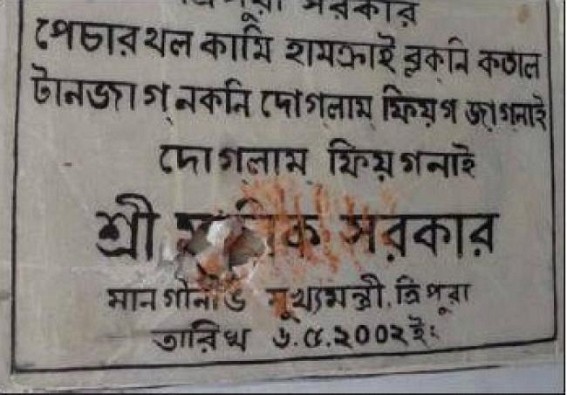 ত্রিপুরা সরকার
পেচারথল কামি হামক্রাই ব্লকনি কতাল
টানজাগ নকনি দোগলাম ফিয়গ জাগনাই
দোগলাম ফিয়গনাই
শ্রী সরকার
মানগীনাঙ মুখ্যমন্ত্রী, ত্রিপুরা
তারিখ ৬.৫.২০০২ইং